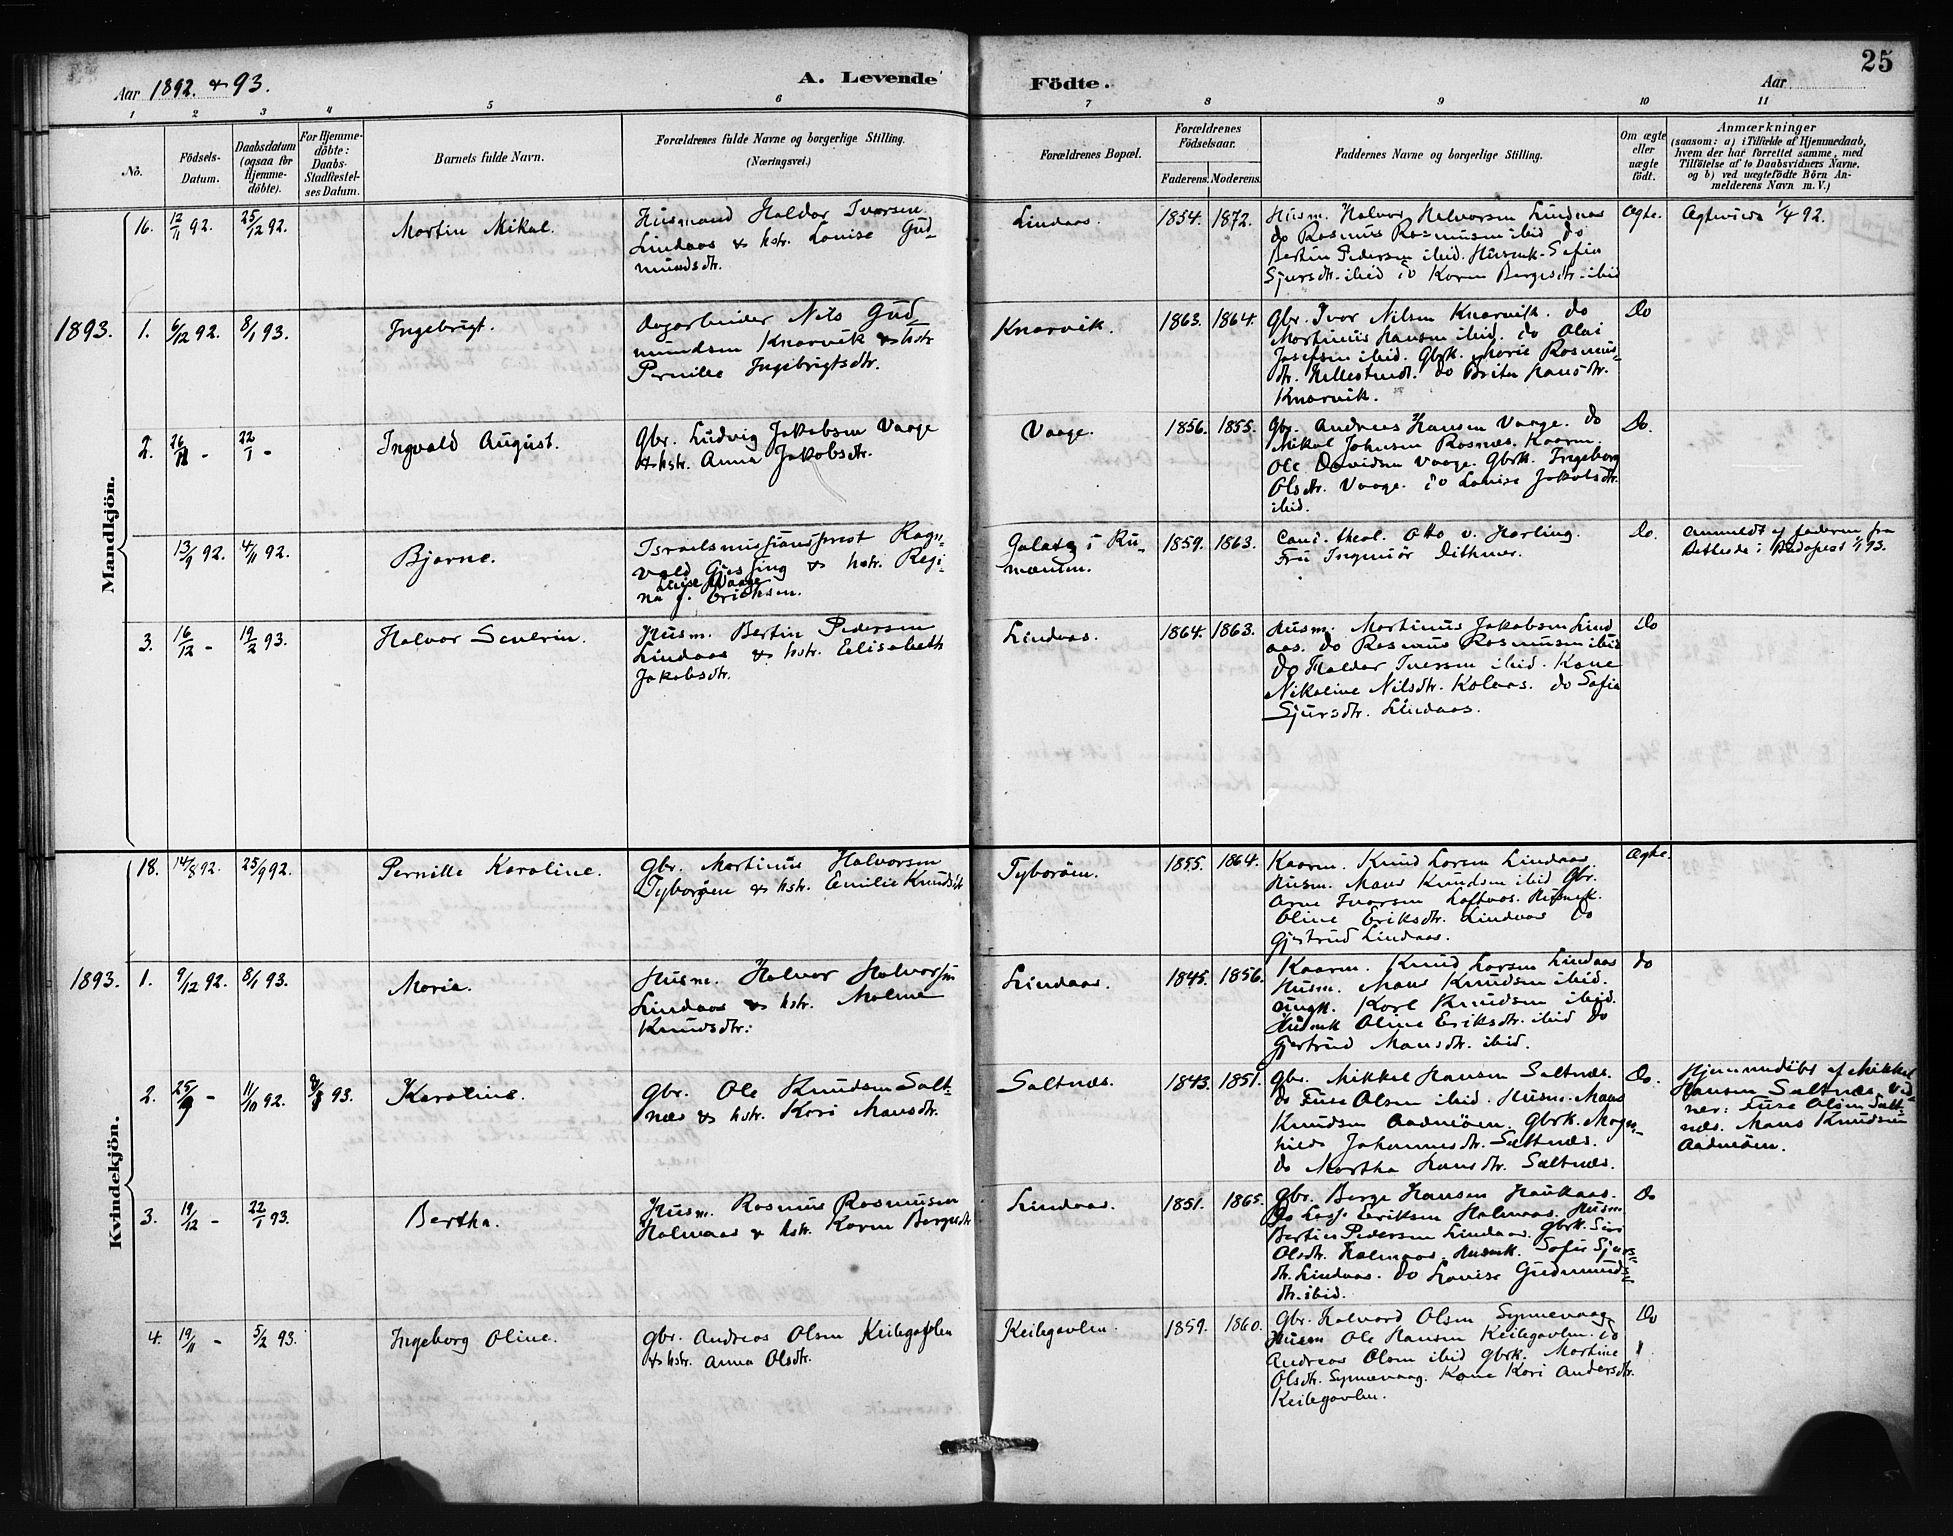 25
Aar 1892 & 93.
A. Levende Födte.
Aar
1 2 3 4 5 6 7 8 9 10 11
No.
Födsels-Datum.
Daabsdatum (ogsaa for Hjemme-döbte).
For Hjemme-döbte: Daabs-Stadfestel-ses Datum.
Barnets fulde Navn.
Forældrenes fulde Navne og borgerlige Stilling.
(Næringsvei.)
Forældrenes Bopæl.
Forældrenes Födselsaar.
Faderens. Moderens.
Faddernes Navne og borgerlige Stilling.
Om ægte eller uægte födt.
Anmærkninger
(saasom: a) i Tilfælde af Hjemmedaab,
hvem der har forrettet samme, med
Tilföielse af to Daabsvidners Navne.
og b) ved uægtefödte Börn An-
melderens Navn m. V.)
Mandkjön.
16. 12/11 92. 25/12 92. Martin Mikal.
Husmand Haldor Iversen
Lindaas & hstr. Louise Gud-
mundsdtr.
Lindaas. 1854. 1872.
Husm. Halvor Halvorsen Lindaas
do Rasmus Rasmusen ibid do
Bertin Pedersen ibid. Husmk. Sofia
Sjursdtr. ibid do Karen Bergesdtr. ibid
Ægte. Ægteviede 1/4 92.
1893. 1. 6/12 92. 8/1 93. Ingebrigt.
Dagarbeider Nils Gud
mundsen Knarvik & hstr
Pernille Ingebrigtsdtr.
Knarvik. 1863. 1864.
Gbr. Ivar Nilsen Knarvik. do
Martinus Hansen ibid. do Olai
Josefsen ibid. Gbrk. Marie Rasmus-
dtr. Hellestvedt. do Brita Hansdtr.
Knarvik.
Do
2. 26/11 - 22/1 - Ingvald August.
Gbr. Ludvig Jakobsen Vaage
& hstr. Anna Jakobsdtr.
Vaage. 1856. 1855.
Gbr. Andreas Hansen Vaage. do
Mikal Johnsen Rosnæs. Kaarm.
Ole Davidsen Vaage. Gbrk. Ingeborg
Olsdtr. Vaage. do Lovise Jakobsdtr.
ibid.
Do.
13/9 92. 4/11 92. Bjarne.
Israelsmissionsprest Ragn-
vald Gjessing & hstr. Regi-
Luise Waage
na f. Erichsen.
Galatz i Ru-
mænien. 1859. 1863.
Cand. theol. Otto v. Harling.
Fru Ingeniör Dithmer.
Do.
Anmeldt af faderen fra
Budapest 1/1 93.
3. 16/12 - 19/2 93. Halvor Severin.
Husm. Bertin Pedersen
Lindaas & hstr. Elisabeth
Jakobsdtr.
Lindaas. 1864. 1863.
Husm. Martinus Jakobsen Lind
aas. do Rasmus Rasmusen ibid
do Haldor Iversen ibid. Kone
Nikoline Nilsdtr. Kolaas. do Sofia
Sjursdtr. Lindaas.
Do
Kvindekjön.
18. 14/8 92. 25/9 92. Pernille Karoline.
Gbr. Martinus Halvorsen
Tyboröen & hstr. Emilie Knudsdtr
Tyboröen. 1855. 1864.
Kaarm. Knud Larsen Lindaas
Husm. Mans Knudsen ibid Gbr.
Arne Ivarsen Loftaas. Husmk.
Oline Eriksdtr. Lindaas do
Gjertrud Lindaas.
Ægte.
1893. 1. 9/12 92. 8/1 93. Marie.
Husm. Halvor Halvorsen
Lindaas & hstr. Malene
Knudsdtr.
Lindaas. 1845. 1856.
Kaarm. Knud Larsen Lindaas
Husm. Mans Knudsen ibid.
Ungk. Karl Knudsen ibid.
Husmk Oline Eriksdtr. ibid do
Gjertrud Mansdtr. ibid.
do
2. 25/9 - 11/10 92. 8/1 93. Karoline.
Gbr. Ole Knudsen Salt-
næs & hstr. Kari Mansdtr.
Saltnæs. 1843. 1851.
Gbr. Mikkel Hansen Saltnæs.
do Fuse Olsen ibid. Husm. Mans
Knudsen Aadneöen. Gbrk. Magn-
hild Johannesdtr. Saltnæs.
do Martha Hansdtr. Saltnæs.
Do.
Hjemmedöbt af Mikkel
Hansen Saltnæs. Vid-
ner: Fuse Olsen Salt-
næs. Mans Knudsen
Aadneöen.
3. 19/12 - 22/1 93. Bertha.
Husm. Rasmus Rasmusen
Halmaas & hstr. Karen Bergesdtr
Lindaas. 1851. 1865.
Gbr. Berge Hansen Haukaas.
do Lars Eriksen Halmaas. Husm
Bertin Pedersen Lindaas. Gbrk. Siri
Olsdtr. Halmaas. Husmk. Sofie Sjurs-
dtr. Lindaas. do Lovise Gudmunds-
dtr. ibid.
Do
4. 19/11 - 5/2 93. Ingeborg Oline.
Gbr. Andreas Olsen Keilegavlen
& hstr. Anna Olsdtr.
Keilegavlen. 1859. 1860.
Gbr. Halvard Olsen Synnevaag
Husm Ole Hansen Keilegavlen. do
Andreas Olsen ibid Gbrk. Martine
Olsdtr. Synnevaag. Kone Kari Andersdtr.
Keilegavlen.
Do